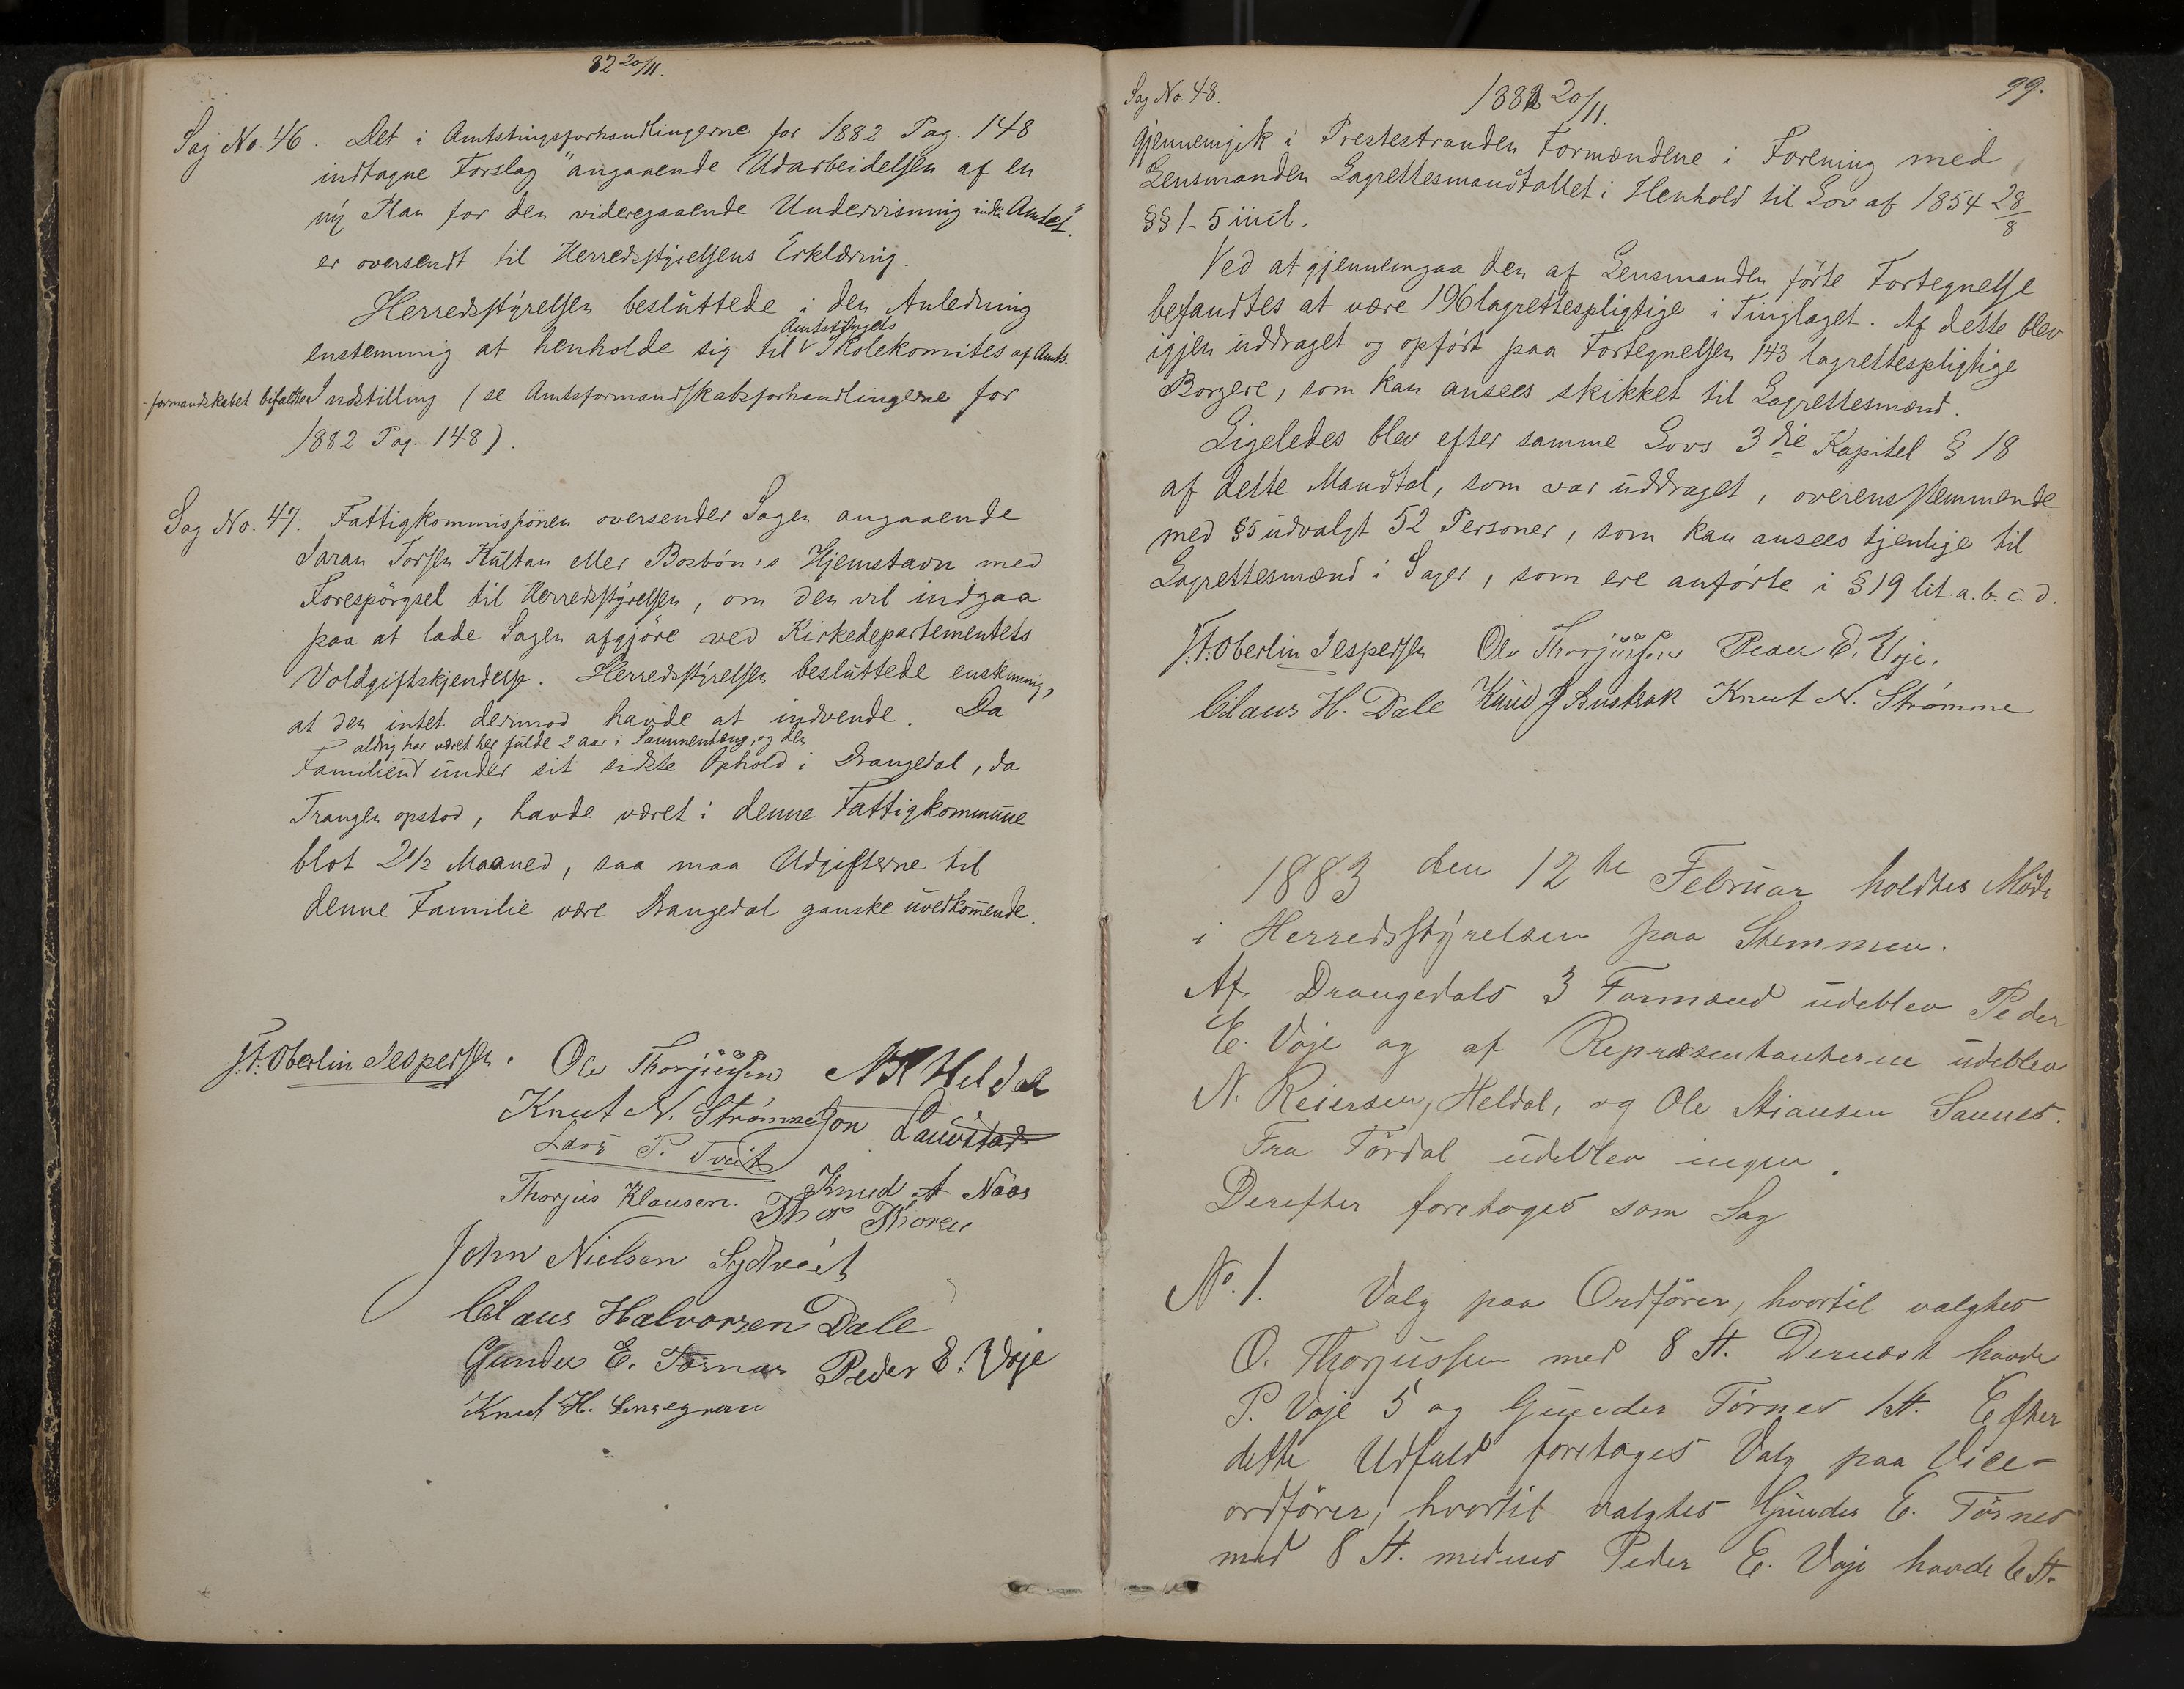 82 20/11.
Sag No. 46. Det i Amtstingsforhandlingerne for 1882 Pag. 148
indtagne Forslag "angaaende Udarbeidelsen af en
ny Plan for den videregaaende Undervisning inden Amtet".
er oversendt til Herredsstyrelsens Erklæring.
Herredsstyrelsen besluttede i den Anledning
Amtstingets
enstemmig at henholde sig til Skolekomites af Amts-
formandskabet bifaldte Indstilling (se Amtsformandskabsforhandlingerne for
1882 Pag. 148).
Sag No. 47. Fattigkommissionen oversender Sagen angaaende
Saran Torsen Kultan eller Bosbön's Hjemstavn med
Forespörgsel til Herredsstyrelsen, om den vil indgaa
paa at lade Sagen afgjöre ved Kirkedepartementets
Voldgiftskjendelse. Herredsstyrelsen besluttede enstemmig,
at den intet derimod havde at indvende. Da
aldrig har været her fulde 2 aar i Sammenhæng, og den
Familien under sit sidste Ophold i Drangedal, da
Trangen opstod, havde været i denne Fattigkommune
blot 2 1/2 Maaned, saa maa Udgifterne til
denne Familie være Drangedal ganske uvedkommende.
J.F. Oberlin Jespersen. Ole Thorjussen N R Heldal
Knut N. Strømme Jon Lauvstad
Lars P. Tveit
Knud A Næs
Thorjus Klausen. Thor Thorsen
John Nielsen Sydtveit
Claus Halvorsen Dale
Gunder E. Törnes Peder E. Voje
Knut H.
99.
Sag No. 48.
1882 20/11.
gjennemgik i Prestestranden Formændene i Forening med
Lensmanden Lagrettesmandtallet i Henhold til Lov af 1854 28/8
§§ 1-5 incl.
Ved at gjennemgaa den af Lensmanden förte Fortegnelse
befandtes at være 196 lagrettespligtige i Tinglaget. Af dette blev
igjen uddraget og opfört paa Fortegnelsen 143 lagrettespligtige
Borgere, som kan ansees skikket til Lagrettesmænd.
Ligeledes blev efter samme Lovs 3die Kapitel § 18
af dette Mandtal, som var uddraget, overensstemmende
med §5 udvalgt 52 Personer, som kan ansees tjenlige til
Lagrettesmænd i Sager, som ere anförte i § 19 lit. a. b. c. d.
J.F. Oberlin Jespersen Ole Thorjussen Peder E. Voje.
Claus H. Dale Knud J Austrak Knut N. Strømme
1883 den 12te Februar holdtes Möde
i Herredsstyrelsen paa Stemmen.
Af Drangedals 3 Formænd udeblev Peder
E. Voje og af Repræsentanterne udeblev
N. Reiersen, Heldal, og Ole Stiansen Sannes.
Fra Tördal udeblev ingen.
Derefter foretoges som Sag
No. 1. Valg paa Ordförer, hvortil valgtes
O. Thorjussen med 8 St. Dernæst havde
P. Voje 5 og Gunder Törnes 1 St. Efter
dette Udfald foretoges Valg paa Vice-
ordförer, hvortil valgtes Gunder E. Törnes
med 8 St. medens Peder E. Voje havde 6 St.